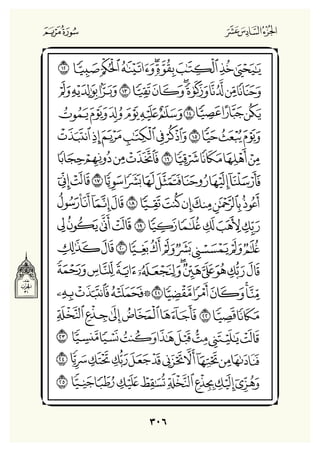 الجُزْءُ السَّادِسَ عَشَرَ
سُورَةُ مَرْيَمَ
يَٰيَحْيَىٰ خُذِ ٱلْكِتَٰبَ بِقُوَّةٍۖ وَءَاتَيْنَٰهُ ٱلْحُكْمَ صَبِيًّا ١٢
وَحَنَانًا مِّن لَّدُنَّا وَزَكَوٰةًۖ وَكَانَ تَقِيًّا ١٣ وَبَرًّۢا بِوَٰلِدَيْهِ وَلَمْ
يَكُن جَبَّارًا عَصِيًّا ١٤ وَسَلَٰمٌ عَلَيْهِ يَوْمَ وُلِدَ وَيَوْمَ يَمُوتُ
وَيَوْمَ يُبْعَثُ حَيًّا ١٥ وَٱذْكُرْ فِى ٱلْكِتَٰبِ مَرْيَمَ إِذِ ٱنتَبَذَتْ
مِنْ أَهْلِهَا مَكَانًا شَرْقِيًّا ١٦ فَٱتَّخَذَتْ مِن دُونِهِمْ حِجَابًا
فَأَرْسَلْنَآ إِلَيْهَا رُوحَنَا فَتَمَثَّلَ لَهَا بَشَرًا سَوِيًّا ١٧ قَالَتْ إِنِّىٓ
أَعُوذُ بِٱلرَّحْمَٰنِ مِنكَ إِن كُنتَ تَقِيًّا ١٨ قَالَ إِنَّمَآ أَنَا۠ رَسُولُ
رَبِّكِ لِأَهَبَ لَكِ غُلَٰمًا زَكِيًّا ١٩ قَالَتْ أَنَّىٰ يَكُونُ لِى
غُلَٰمٌ وَلَمْ يَمْسَسْنِى بَشَرٌ وَلَمْ أَكُ بَغِيًّا ٢٠ قَالَ كَذَٰلِكِ
قَالَ رَبُّكِ هُوَ عَلَىَّ هَيِّنٌۖ وَلِنَجْعَلَهُۥٓ ءَايَةً لِّلنَّاسِ وَرَحْمَةً
مِّنَّاۚ وَكَانَ أَمْرًا مَّقْضِيًّا ٢١ ۞ فَحَمَلَتْهُ فَٱنتَبَذَتْ بِهِۦ
مَكَانًا قَصِيًّا ٢٢ فَأَجَآءَهَا ٱلْمَخَاضُ إِلَىٰ جِذْعِ ٱلنَّخْلَةِ
قَالَتْ يَٰلَيْتَنِى مِتُّ قَبْلَ هَٰذَا وَكُنتُ نَسْيًا مَّنسِيًّا ٢٣
فَنَادَىٰهَا مِن تَحْتِهَآ أَلَّا تَحْزَنِى قَدْ جَعَلَ رَبُّكِ تَحْتَكِ سَرِيًّا ٢٤
وَهُزِّىٓ إِلَيْكِ بِجِذْعِ ٱلنَّخْلَةِ تُسَٰقِطْ عَلَيْكِ رُطَبًا جَنِيًّا ٢٥
٣٠٦